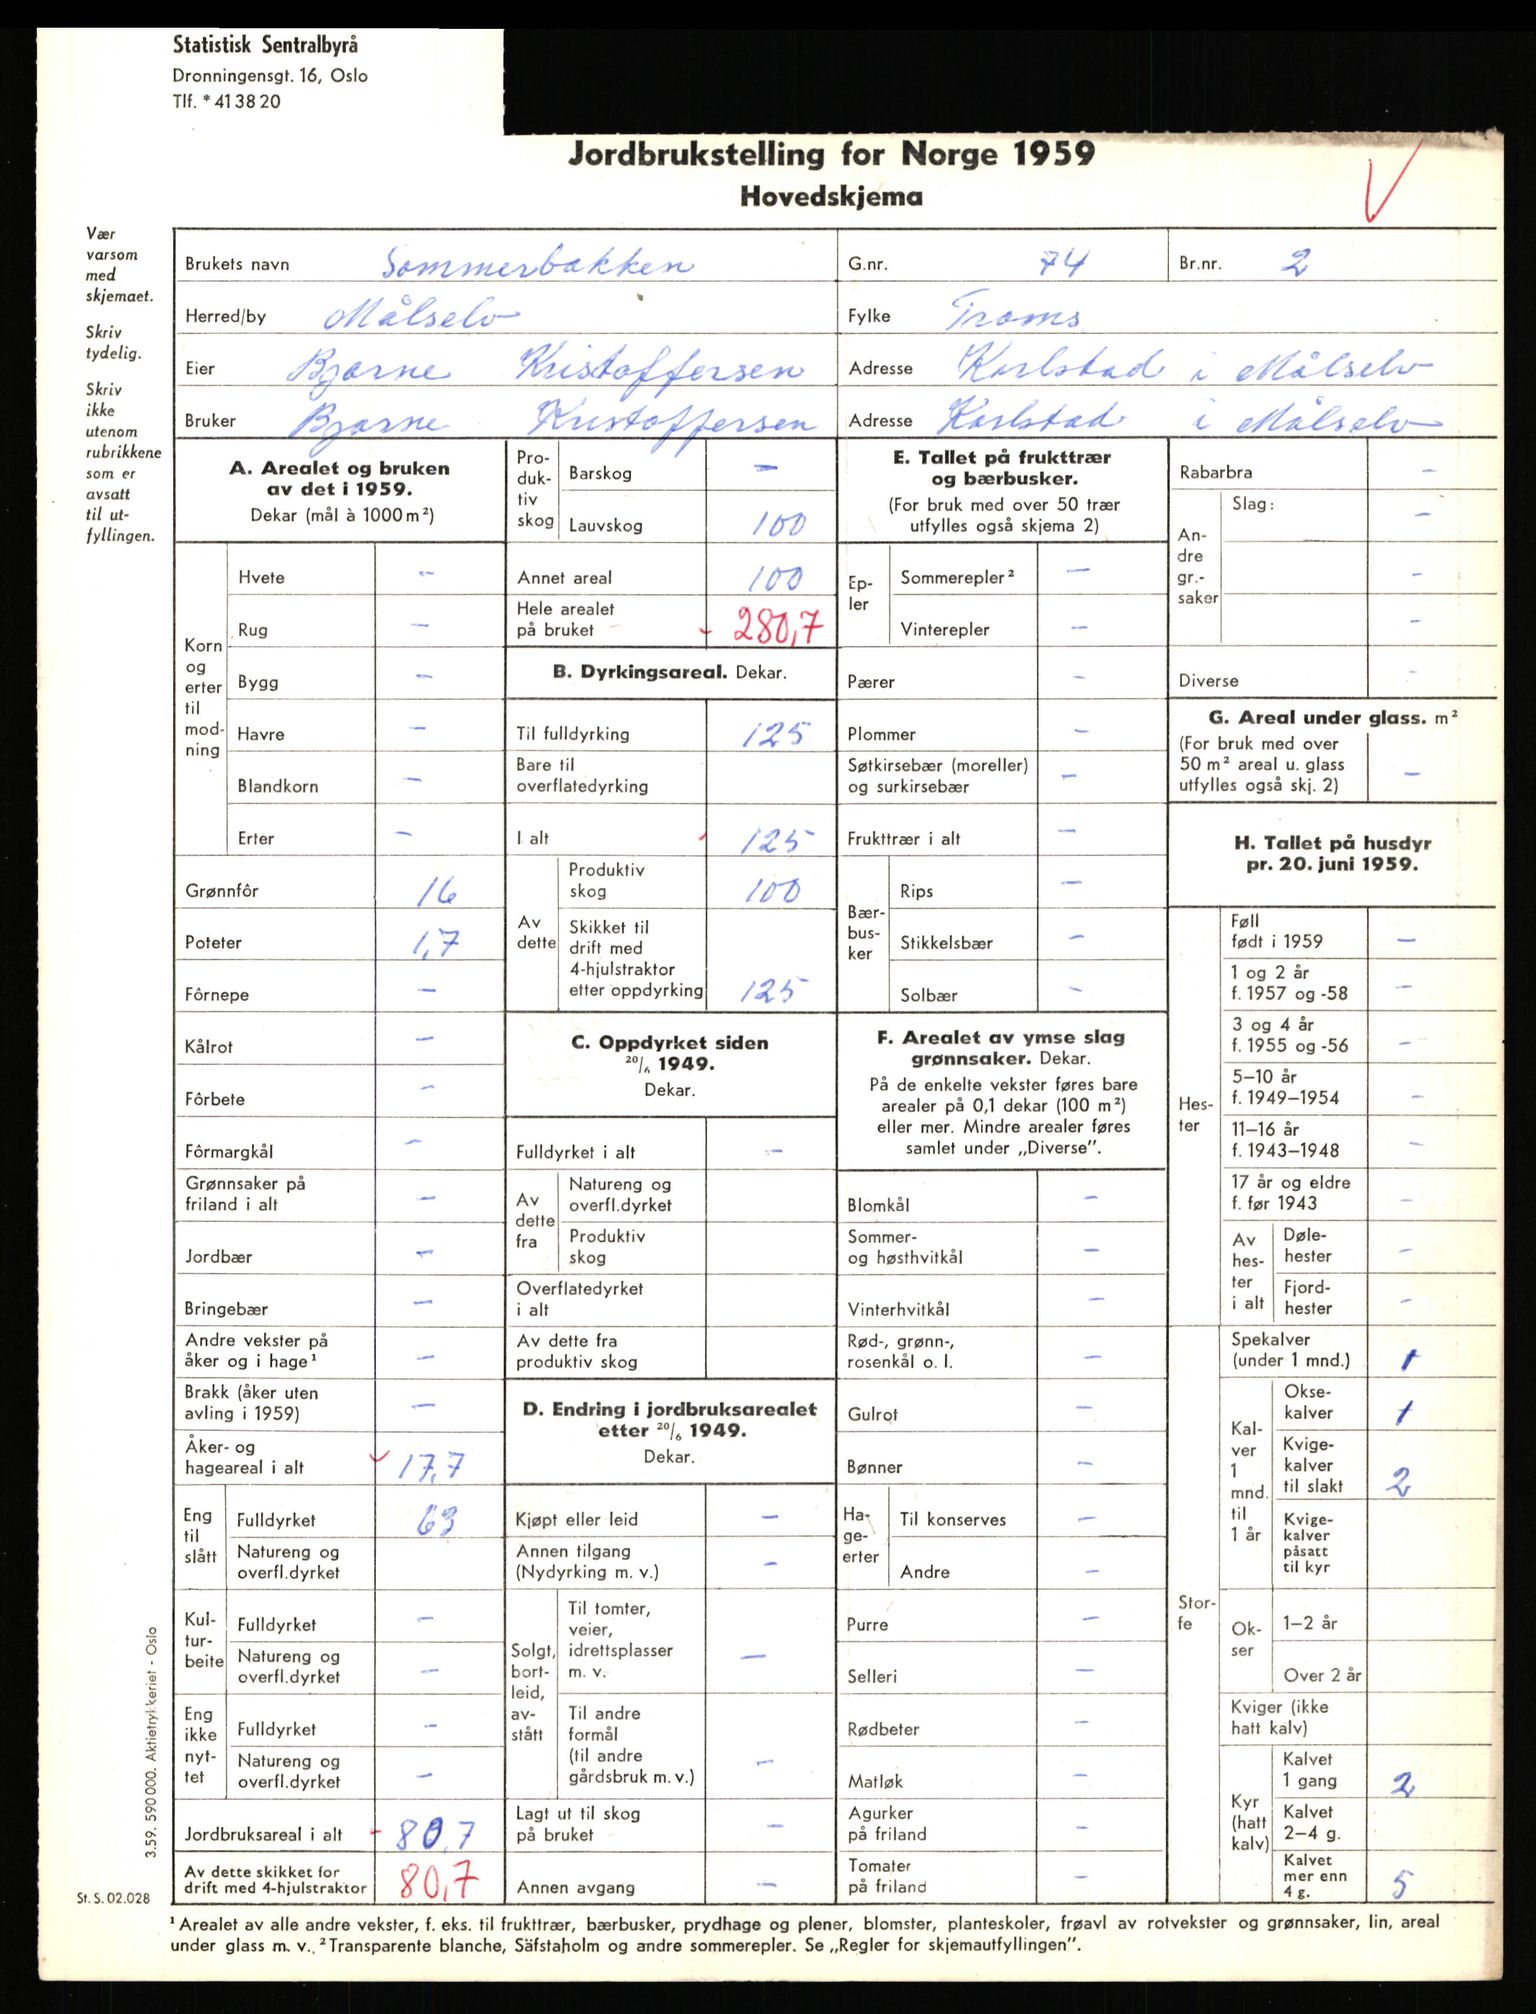 Statistisk Sentralbyrå
Dronningensgt. 16, Oslo
Tlf. * 41 38 20
Jordbrukstelling for Norge 1959
Hovedskjema
Vær
varsom
med
skjemaet.
Skriv
tydelig.
Skriv
ikke
utenom
rubrikkene
som er
avsatt
til ut-
fyllingen.
Brukets navn Sommerbakken G.nr. 74 Br.nr. 2
Herred/by Målselv Fylke Troms
Eier Bjarne Kristoffersen Adresse Karlstad i Målselv
Bruker Bjarne Kristoffersen Adresse Karlstad i Målselv
A. Arealet og bruken
av det i 1959.
Dekar (mål à 1000 m²)
Korn
og
erter
til
mod-
ning
Hvete –
Rug –
Bygg –
Havre –
Blandkorn –
Erter –
Grønnfôr 16
Poteter 1,7
Fôrnepe –
Kålrot –
Fôrbete –
Fôrmargkål –
Grønnsaker på
friland i alt –
Jordbær –
Bringebær –
Andre vekster på
åker og i hage¹ –
Brakk (åker uten
avling i 1959) –
Åker- og
hageareal i alt 17,7
Eng
til
slått
Fulldyrket 63
Natureng og
overfl.dyrket
Kul-
tur-
beite
Fulldyrket –
Natureng og
overfl.dyrket –
Eng
ikke
nyt-
tet
Fulldyrket –
Natureng og
overfl.dyrket –
Jordbruksareal i alt 80,7
Av dette skikket for
drift med 4-hjulstraktor 80,7
Pro-
duk-
tiv
skog
Barskog –
Lauvskog 100
Annet areal 100
Hele arealet
på bruket 280,7
B. Dyrkingsareal. Dekar.
Til fulldyrking 125
Bare til
overflatedyrking
I alt 125
Av
dette
Produktiv
skog 100
Skikket til
drift med
4-hjulstraktor
etter oppdyrking 125
C. Oppdyrket siden
20/6 1949.
Dekar.
Fulldyrket i alt –
Av
dette
fra
Natureng og
overfl.dyrket
Produktiv
skog
Overflatedyrket
i alt
Av dette fra
produktiv skog
D. Endring i jordbruksarealet
etter 20/6 1949.
Dekar.
Kjøpt eller leid –
Annen tilgang
(Nydyrking m. v.) –
Solgt,
bort-
leid,
av-
stått
Til tomter,
veier,
idrettsplasser
m. v. –
Til andre
formål
(til andre
gårdsbruk m. v.) –
Lagt ut til skog
på bruket –
Annen avgang –
E. Tallet på frukttrær
og bærbusker.
(For bruk med over 50 trær
utfylles også skjema 2)
Ep-
ler
Sommerepler² –
Vinterepler –
Pærer –
Plommer –
Søtkirsebær (moreller)
og surkirsebær –
Frukttrær i alt –
Bær-
bus-
ker
Rips –
Stikkelsbær –
Solbær –
F. Arealet av ymse slag
grønnsaker. Dekar.
På de enkelte vekster føres bare
arealer på 0,1 dekar (100 m²)
eller mer. Mindre arealer føres
samlet under „Diverse”.
Blomkål –
Sommer-
og høsthvitkål –
Vinterhvitkål –
Rød-, grønn-,
rosenkål o. l. –
Gulrot –
Bønner –
Ha-
ge-
erter
Til konserves –
Andre –
Purre –
Selleri –
Rødbeter –
Matløk –
Agurker
på friland –
Tomater
på friland –
Rabarbra –
An-
dre
gr.-
saker
Slag: –
–
–
Diverse –
G. Areal under glass. m²
(For bruk med over
50 m² areal u. glass
utfylles også skj. 2) –
H. Tallet på husdyr
pr. 20. juni 1959.
Hes-
ter
Føll
født i 1959 –
1 og 2 år
f. 1957 og -58 –
3 og 4 år
f. 1955 og -56 –
5–10 år
f. 1949–1954 –
11–16 år
f. 1943–1948 –
17 år og eldre
f. før 1943 –
Av
hes-
ter
i alt
Døle-
hester –
Fjord-
hester –
Stor-
fe
Spekalver
(under 1 mnd.) 1
Kal-
ver
1
mnd.
til
1 år
Okse-
kalver 1
Kvige-
kalver
til slakt 2
Kvige-
kalver
påsatt
til kyr
Ok-
ser
1–2 år
Over 2 år
Kviger (ikke
hatt kalv)
Kyr
(hatt
kalv)
Kalvet
1 gang 2
Kalvet
2–4 g.
Kalvet
mer enn
4 g. 5
3.59. 590 000. Aktietrykkeriet - Oslo
St. S. 02.028
¹ Arealet av alle andre vekster, f. eks. til frukttrær, bærbusker, prydhage og plener, blomster, planteskoler, frøavl av rotvekster og grønnsaker, lin, areal
under glass m. v. ² Transparente blanche, Säfstaholm og andre sommerepler. Se „Regler for skjemautfyllingen”.